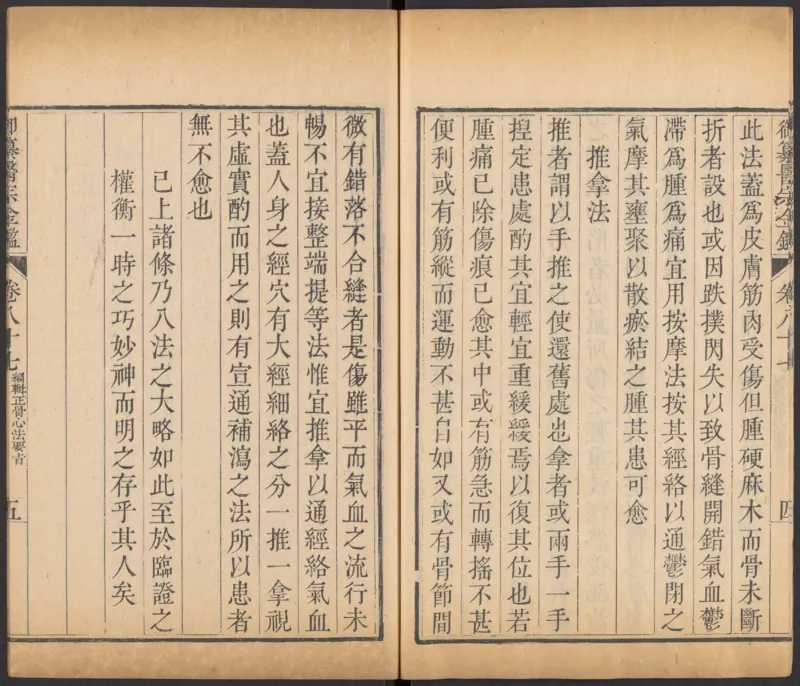 御纂醫宗金鑑
卷八十七
四
此法蓋爲皮膚筋肉受傷但腫硬麻木而骨未斷
折者設也或因跌撲閃失以致骨縫開錯氣血鬱
滯爲腫爲痛宜用按摩法按其經絡以通鬱閉之
氣摩其壅聚以散瘀結之腫其患可愈
推拿法
推者謂以手推之使還舊處也拿者或兩手一手
揑定患處酌其宜輕宜重緩緩焉以復其位也若
腫痛已除傷痕已愈其中或有筋急而轉搖不甚
便利或有筋縱而運動不甚自如又或有骨節間
微有錯落不合縫者是傷雖平而氣血之流行未
暢不宜接整端提等法惟宜推拿以通經絡氣血
也蓋人身之經穴有大經細絡之分一推一拿視
其虛實酌而用之則有宣通補瀉之法所以患者
無不愈也
已上諸條乃八法之大略如此至於臨證之
權衡一時之巧妙神而明之存乎其人矣
御纂醫宗金鑑
卷八十七
編輯正骨心法要旨
五